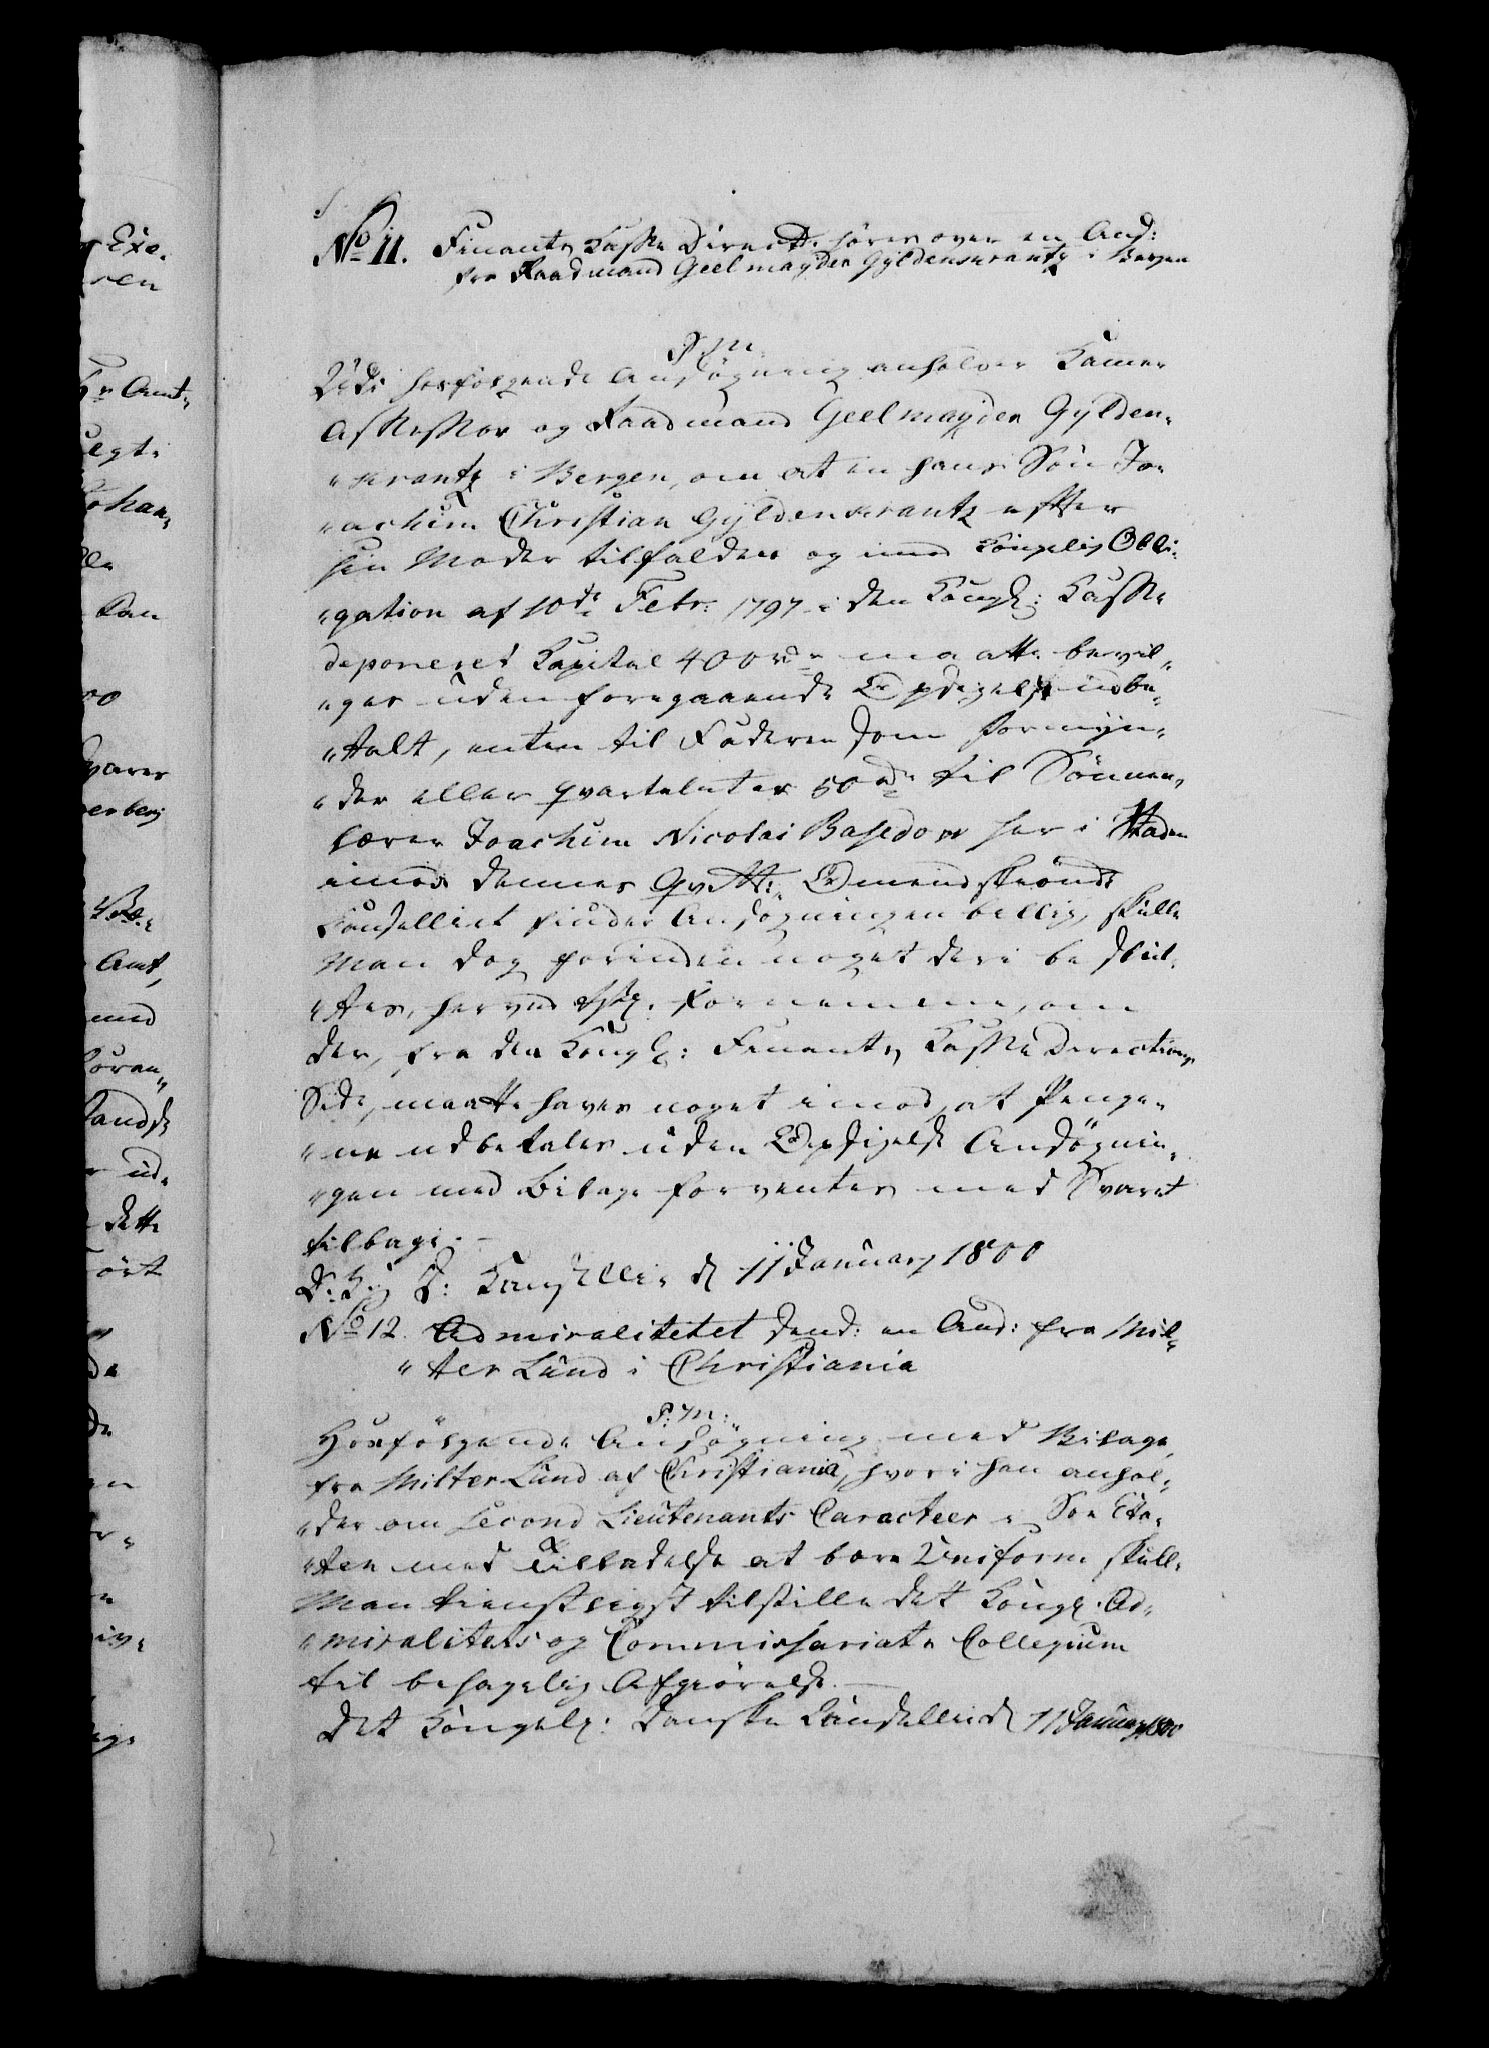 No 11. Finants Kasse Direct: høres over en And:
fra Raadmand Geelmuyden Gyldenkrantz i Bergen
P. M.
Udi hosfølgende Ansøgning anholder Kammer
Assessor og Raadmand Geelmuyden Gylden-
"krantz i Bergen, om at en hans Søn Jo-
"achim Christian Gyldenkrantz efter
sin Moder tilfalden og imod Kongelig Obli-
"gation af 10de Febr: 1797 i den Kongl: Kasse
deponeret Capital 400 rd maatte bevil-
"ges uden foregaaende Opsigelse udbe-
"talt, enten til Faderen som Formyn-
"der eller qvartaliter 50 rd til Sønnens
Lærer Joachim Nicolai Basedow her i Staden
imod dennes Qvitt: Omendskiøndt
Kanselliet finder Ansøgningen billig, skulle
Man dog forinden noget deri beslut-
"tes, herved fornemme, om
der, fra den Kongl: Finants Kasse Directions
Side, maatte haves noget imod, at Penge-
"ne udbetales uden Opsigelse Ansøgnin-
"gen med Bilage forventes med Svaret
tilbage.
D. K. D: Kanselli d 11 January 1800
No 12. Admiralitetet send: en And: fra Mil-
"ter Lund i Christiania
P: M:
Hosfølgende Ansøgning med Bilage
fra Milter Lund af Christiania, hvori han anhol-
"der om Second Lieutenants Caracteer i Søe Eta-
"ten med Tilladelse at bære Uniform skulle
Man tienstligst tilstille det Kongl. Ad-
"miralitets og Commissariats Collegium
til behagelig Afgiørelse.
Det Kongel: Danske Canselli d 11 January 1800